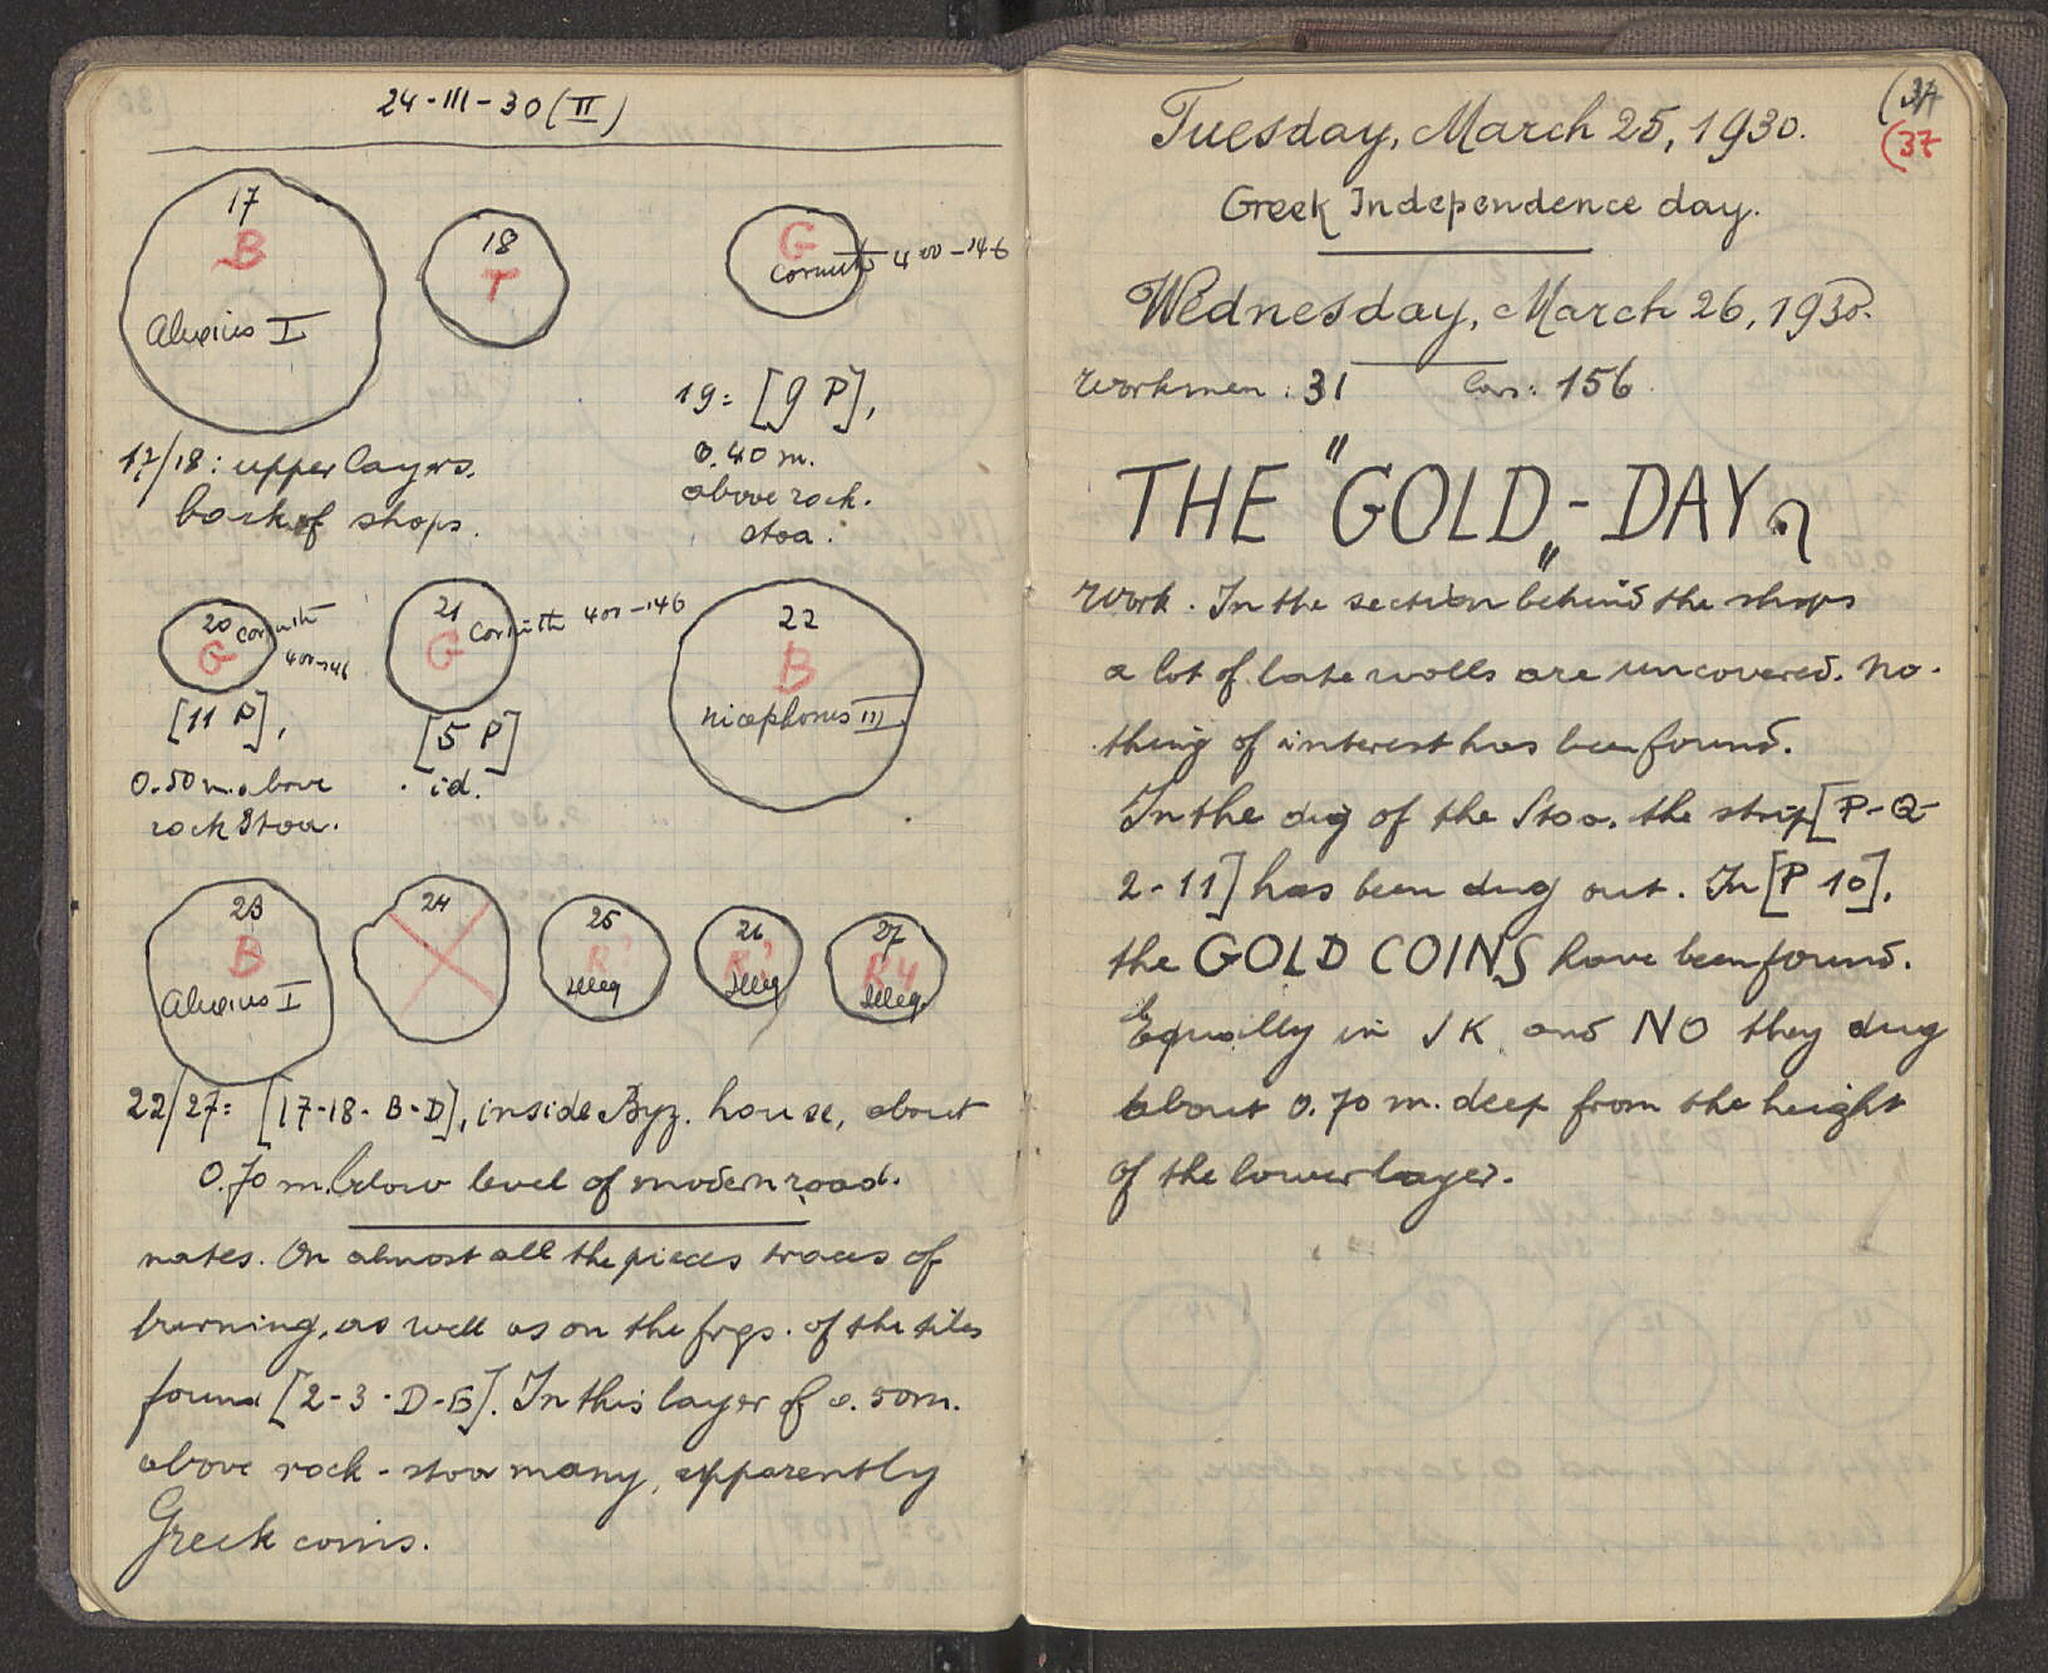 24-III-30 (II)
17
B
Alexius I
18
T
G
Corinth 400-146
17/18: upper layers.
back of shops.
19= [9 P],
0.40 m.
above rock.
stoa.
20 Corinth
G 400-146
[11 P],
0.50 m. above
rock stoa.
21
G Corinth 400-146
[5 P]
id.
22
B
Nicephorus III
23
B
Alexius I
24
25
R
illeg
26
illeg
27
R4
illeg.
22/27= [17-18-B-D], inside Byz. house, about
0.70 m. below level of modern road.
nates. On almost all the pieces traces of
burning, as well as on the frgs. of the tiles
found [2-3-D-E]. In this layer of 0.50m.
above rock-stoa many, apparently
Greek coins.
(37
(37
Tuesday, March 25, 1930.
Greek Independence day.
Wednesday, March 26, 1930.
Workmen: 31 Cars: 156.
THE "GOLD„-DAY
Work. In the section behind the shops
a lot of late walls are uncovered. No-
thing of interest has been found.
In the dig of the Stoa, the strip [P-Q-
2-11] has been dug out. In [P 10],
the GOLD COINS have been found.
Equally in JK and NO they dug
about 0.70 m. deep from the height
of the lower layer.